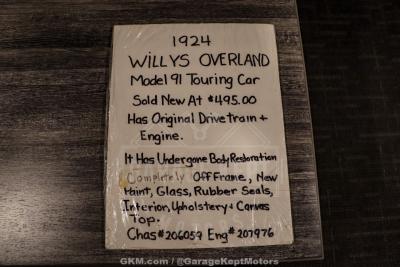 1924
WILLYS OVERLAND
Model 91 Touring Car
Sold New At $495.00
Has Original Drivetrain +
Engine.
It Has Undergone Body Restoration
Completely Off Frame, New
Paint, Glass, Rubber Seals,
Interior, Upholstery + Canvas
Top.
Chas# 206059 Eng# 207976
GKM.com / @GarageKeptMotors